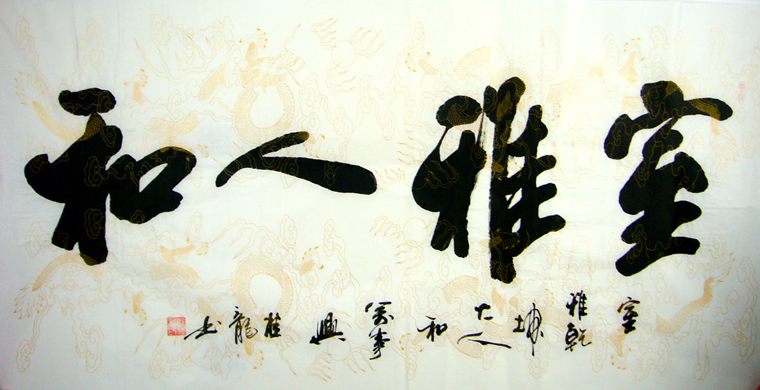 室雅人和
室雅乾坤大人和萬事興 桂龍书